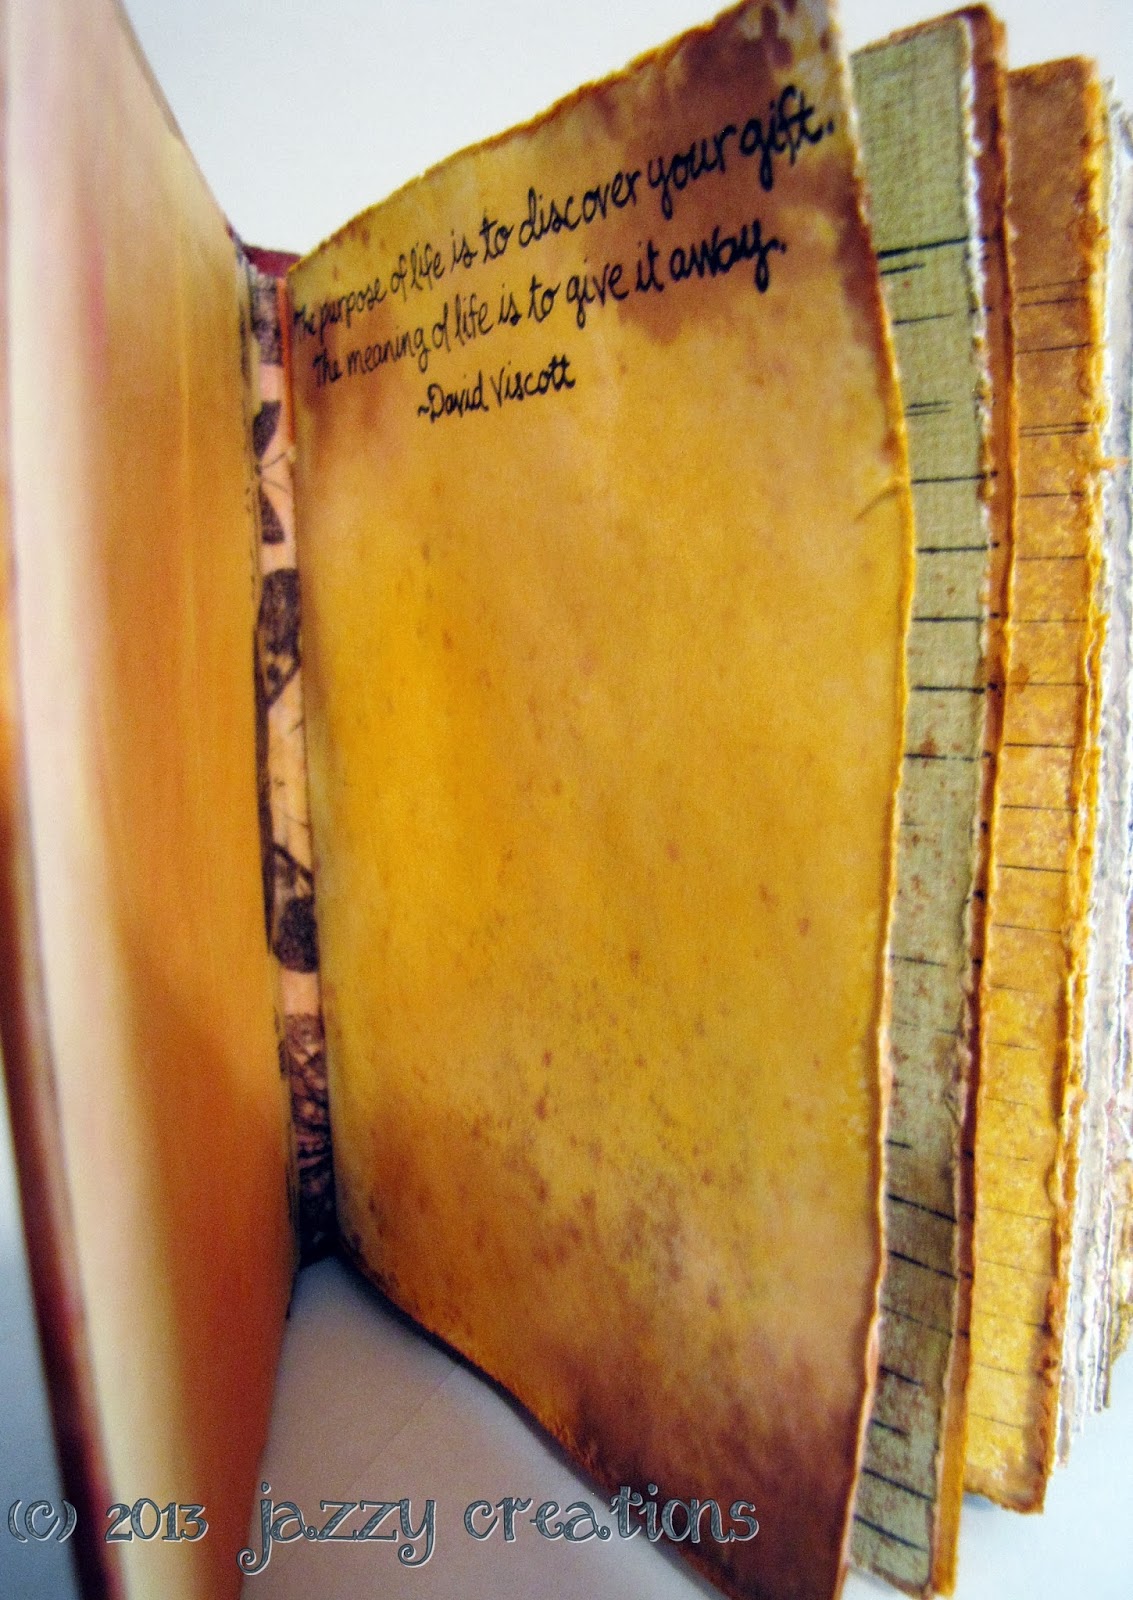 The purpose of life is to discover your gift.
The meaning of life is to give it away.
~David Viscott
(c) 2013 jazzy creations